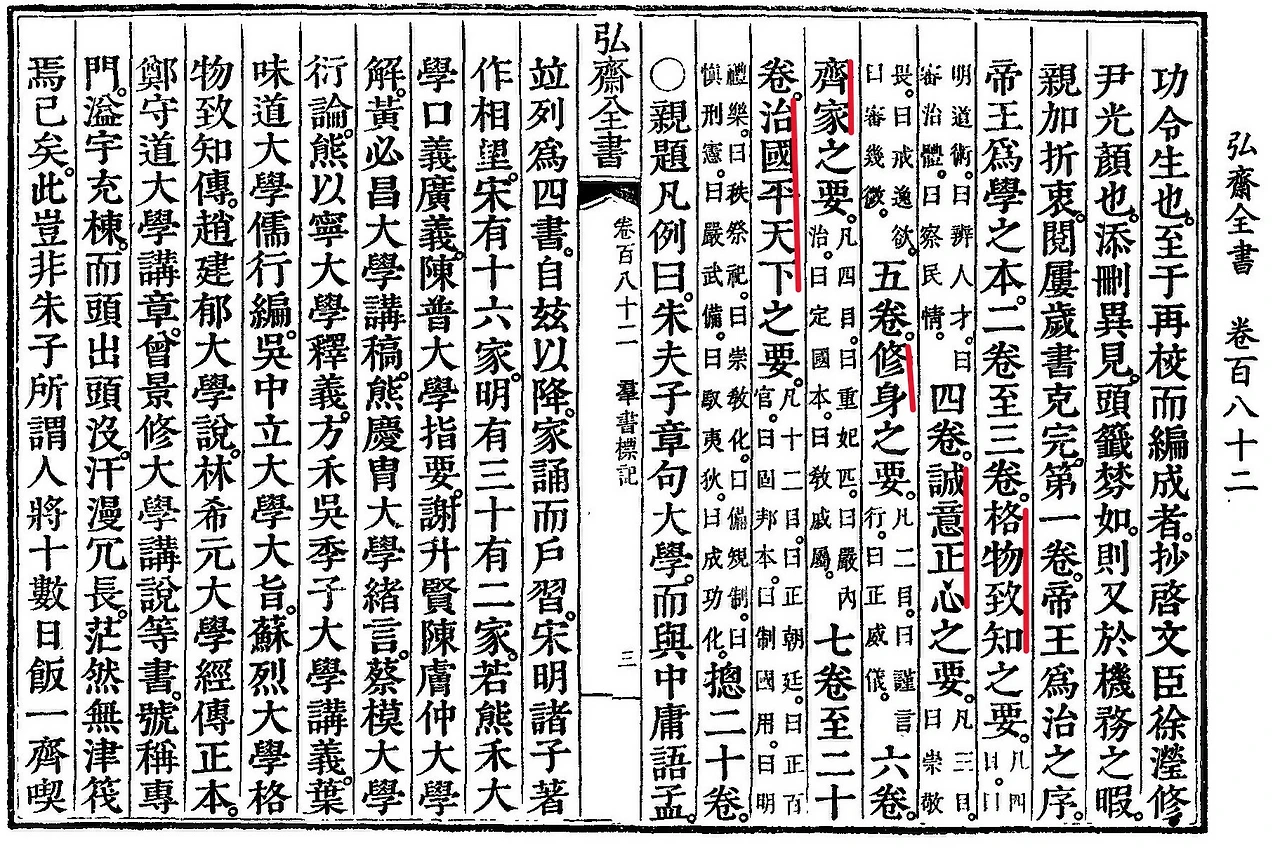 弘齋全書 卷百八十二
功令生也。至于再校而編成者。抄啓文臣徐瀅修。
尹光顏也。添刪異見。頭籤棼如。則又於機務之暇。
親加折衷。閱屢歲書克完。第一卷。帝王爲治之序。
帝王爲學之本。二卷至三卷。格物致知之要。凡四目。曰
明道術。曰辨人才。曰審治體。曰察民情。四卷。誠意正心之要。凡三目曰崇敬
畏。曰戒逸欲。曰審幾微。五卷。修身之要。凡二目。曰謹言行。曰正威儀。六卷。
齊家之要。凡四目。曰重妃匹。曰嚴內治。曰定國本。曰敎戚屬。七卷至二十
卷。治國平天下之要。凡十二目。曰正朝廷。曰正百官。曰固邦本。曰制國用。曰明
禮樂。曰秩祭祀。曰崇敎化。曰備規制。曰愼刑憲。曰嚴武備。曰馭夷狄。曰成功化。摠二十卷。
○親題凡例曰。朱夫子章句大學。而與中庸語孟。
弘齋全書 卷百八十二 羣書標記 三
竝列爲四書。自玆以降。家誦而戶習。宋明諸子著
作相望。宋有十六家。明有三十有二家。若熊禾大
學口義廣義。陳普大學指要。謝升賢陳膚仲大學
解。黃必昌大學講稿。熊慶胄大學緖言。蔡模大學
衍論。熊以寧大學釋義。方禾吳季子大學講義。葉
味道大學儒行編。吳中立大學大旨。蘇烈大學格
物致知傳。趙建郁大學說。林希元大學經傳正本。
鄭守道大學講章。曾景修大學講說等書。號稱專
門。溢宇充棟。而頭出頭沒。汗漫冗長。茫然無津筏
焉已矣。此豈非朱子所謂人將十數日飯一齊喫